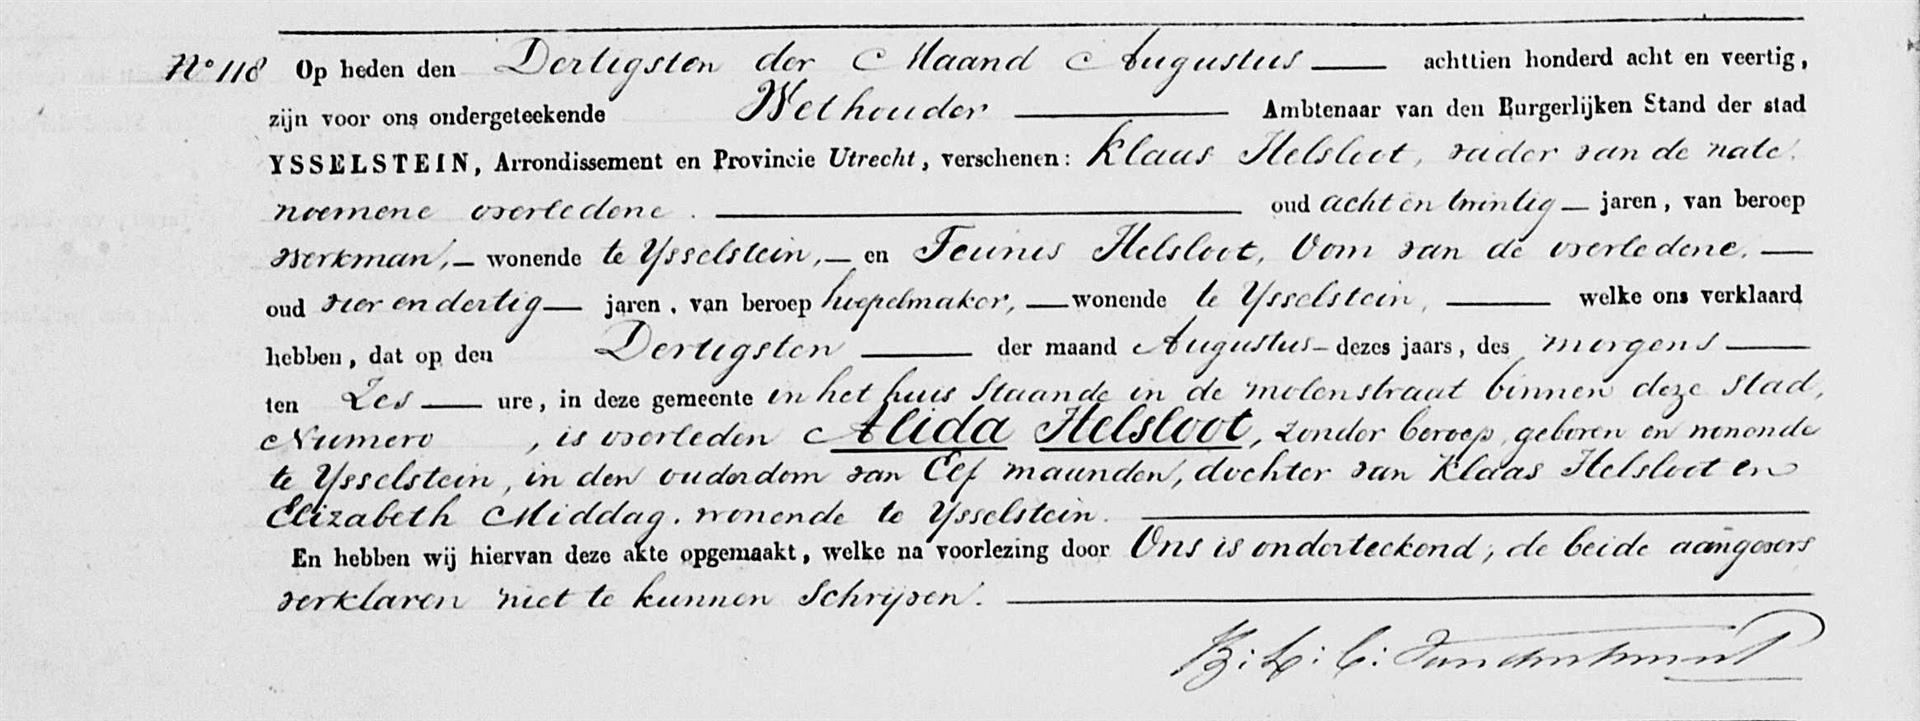 No 118 Op heden den Dertigsten der Maand Augustus achttien honderd acht en veertig,
zijn voor ons ondergeteekende Wethouder Ambtenaar van den Burgerlijken Stand der stad
YSSELSTEIN, Arrondissement en Provincie Utrecht, verschenen: Klaas Helsloot, vader van de nate
noemene overledene. oud acht en twintig jaren, van beroep
werkman, wonende te Ysselstein, en Teunis Helsloot, Oom van de overledene.
oud vier en dertig jaren, van beroep hoepelmaker, wonende te Ysselstein, welke ons verklaard
hebben, dat op den Dertigsten der maand Augustus dezes jaars, des morgens
ten Zes ure, in deze gemeente in het huis Staande in de molenstraat binnen deze Stad,
Numero , is overleden Alida Helsloot, zonder beroep, geboren en wonende
te Ysselstein, in den ouderdom van Elf maanden, dochter van Klaas Helsloot en
Elizabeth Middag. wonende te Ysselstein.
En hebben wij hiervan deze akte opgemaakt, welke na voorlezing door Ons is onderteekend, de beide aangevers
verklaren niet te kunnen Schrijven.